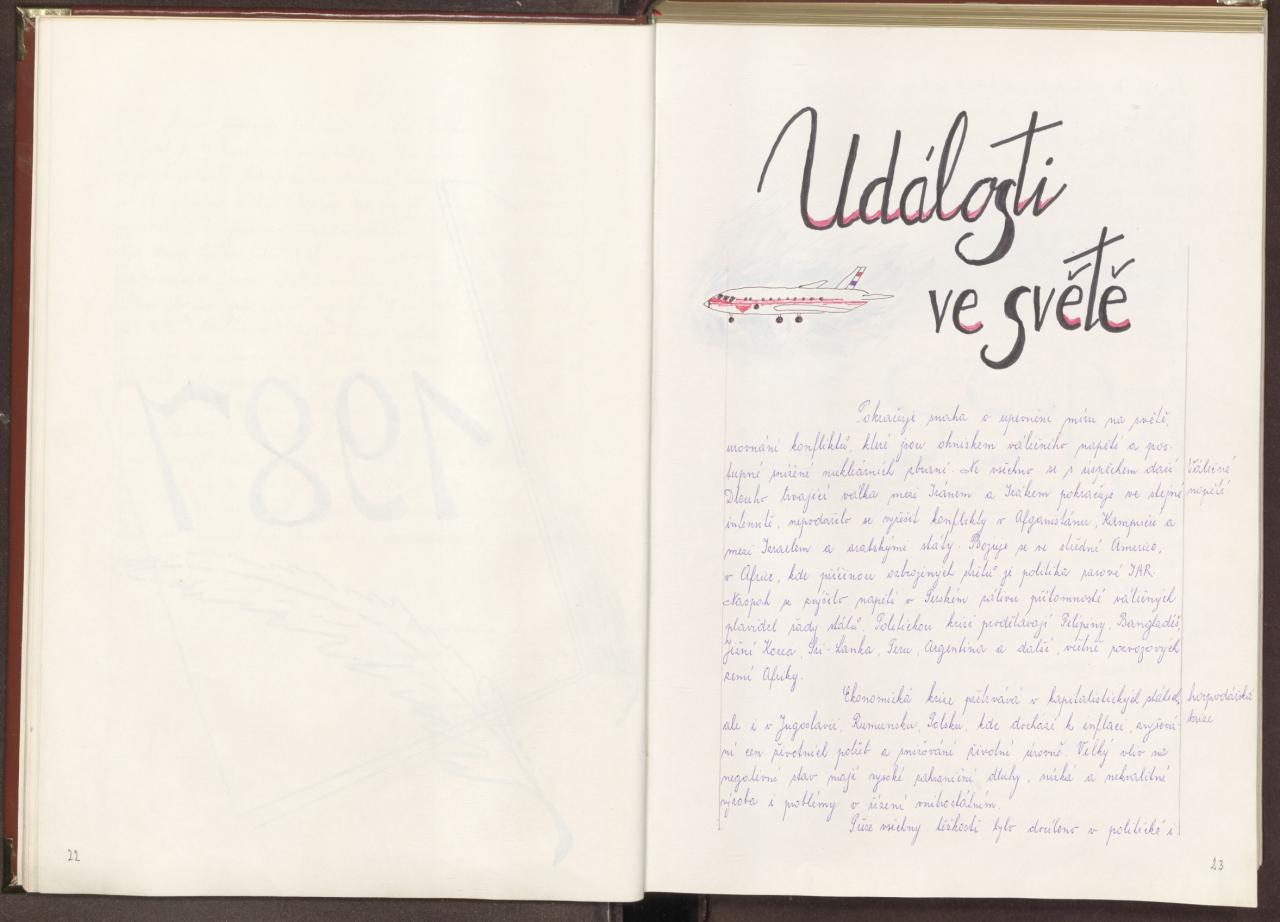 Události
ve světě
Pokračuje snaha o upevnění míru na světě,
urovnání konfliktů, které jsou ohniskem válečného napětí a pos-
tupné snížení nukleárních zbraní. Ne všechno se s úspěchem daří.
Válečné
Dlouho trvající válka mezi Iránem a Irákem pokračuje ve stejné
napětí
intensitě, nepodařilo se vyřešit konflikty v Afganistánu, Kampučii a
mezi Israelem a arabskými státy. Bojuje se ve střední Americe,
v Africe, kde příčinou ozbrojených střetů je politika rasové JAR.
Naopak se zvýšilo napětí v Perském zálivu přítomností válečných
plavidel řady států. Politickou krizi prodělávají Filipiny, Bangladéš,
Jižní Korea, Srí-Lanka, Peru, Argentina a další, včetně rozvojových
zemí Afriky.
Ekonomická krize přetrvává v kapitalistických státech,
hospodářská
ale i v Jugoslavii, Rumunsku, Polsku, kde dochází k inflaci, zvyšová-
krize
ní cen životních potřeb a snižování životní úrovně. Velký vliv na
negativní stav mají vysoké zahraniční dluhy, nízká a nekvalitní
výroba i problémy v řízení vnitrostátním.
Přes všechny těžkosti bylo docíleno v politické i
22
23
1987